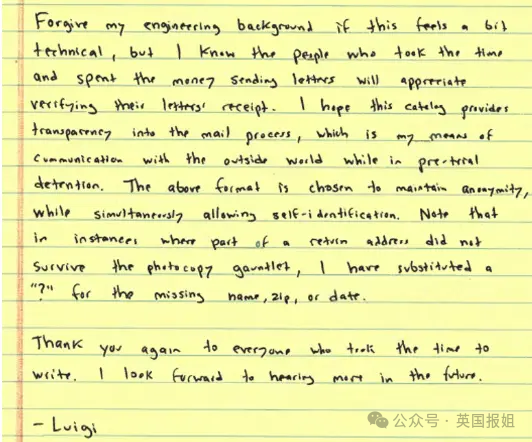 Forgive my engineering background if this feels a bit
technical, but I know the people who took the time
and spent the money sending letters will appreciate
verifying their letters' receipt. I hope this catalog provides
transparency into the mail process, which is my means of
communication with the outside world while in pre-trial
detention. The above format is chosen to maintain anonymity,
while simultaneously allowing self-identification. Note that
in instances where part of a return address did not
survive the photocopy gauntlet, I have substituted a
"?" for the missing name, zip, or date.
Thank you again to everyone who took the time to
write. I look forward to hearing more in the future.
- Luigi
公众号 · 英国报姐